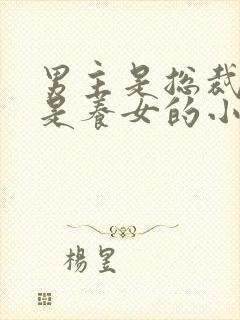 男主是总裁
是养女的小
杨昱